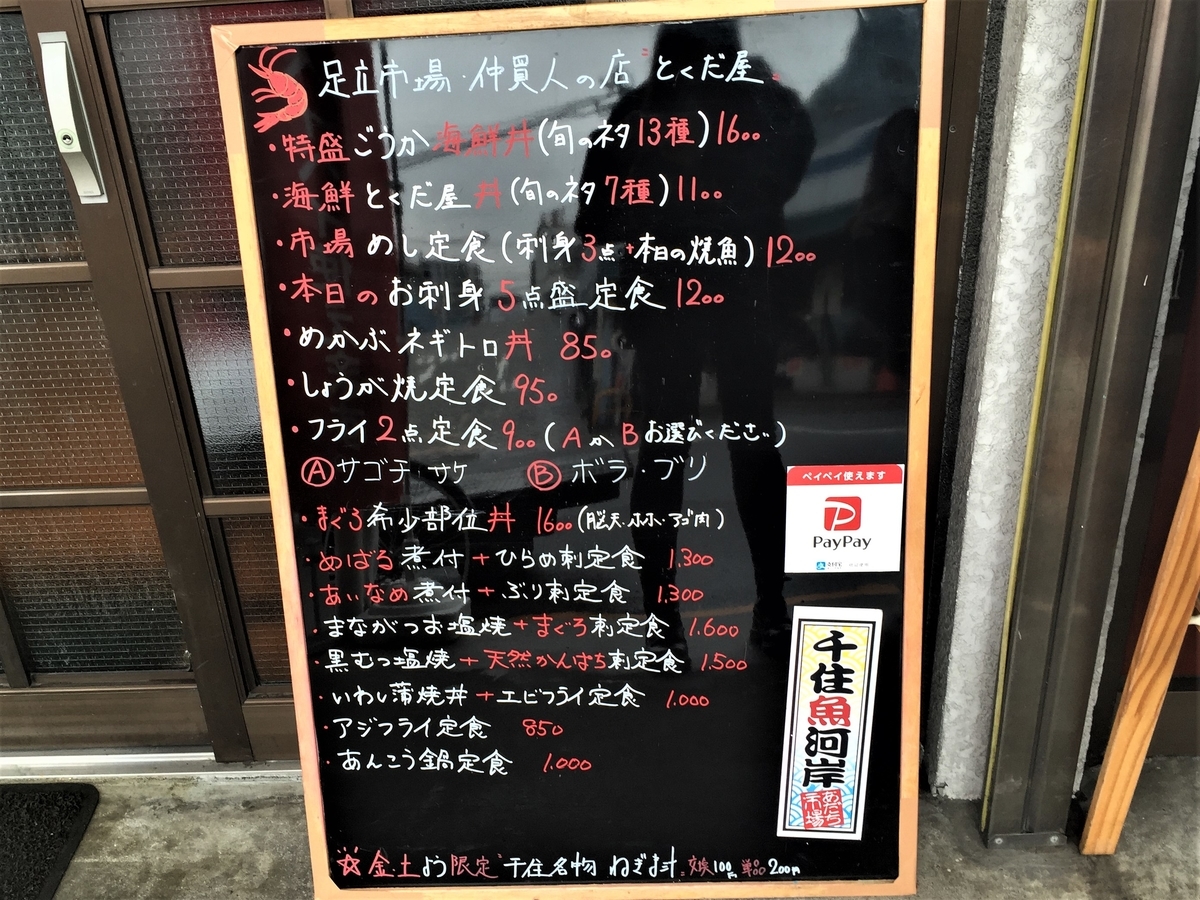 足立市場・仲買人の店"とくだ屋"
・特盛ごうか海鮮丼(旬のネタ13種)1600
・海鮮とくだ屋丼(旬のネタ7種)1100
・市場めし定食(刺身3点+本日の焼魚)1200
・本日のお刺身5点盛定食1200
・めかぶネギトロ丼 850
・しょうが焼定食950
・フライ2点定食900(AかBお選びください)
Ⓐサゴチ・サケ Ⓑボラ・ブリ
・まぐろ希少部位丼 1600(脳天・ホホ・アゴ肉)
・めばる煮付+ひらめ刺定食 1.300
・あいなめ煮付+ぶり刺定食 1.300
・まながつお塩焼+まぐろ刺定食 1.600
・黒むつ塩焼+天然かんぱち刺定食 1.500
・いわし蒲焼丼+エビフライ定食 1.000
・アジフライ定食 850
・あんこう鍋定食 1.000
☆金・土よう限定"千住名物 ねぎま汁"交換100円 単品200円
ペイペイ使えます
PayPay
千住魚河岸
あだち市場